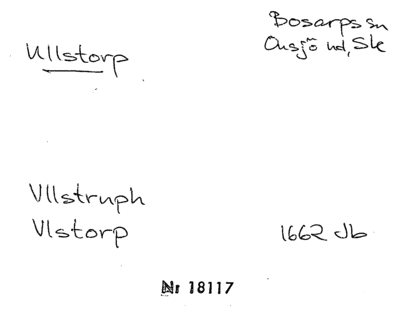 Bosarps sn
Ullstorp
Onsjö hd, Sk
Vllstruph
Vlstorp
1662 Jb
Nr 18117